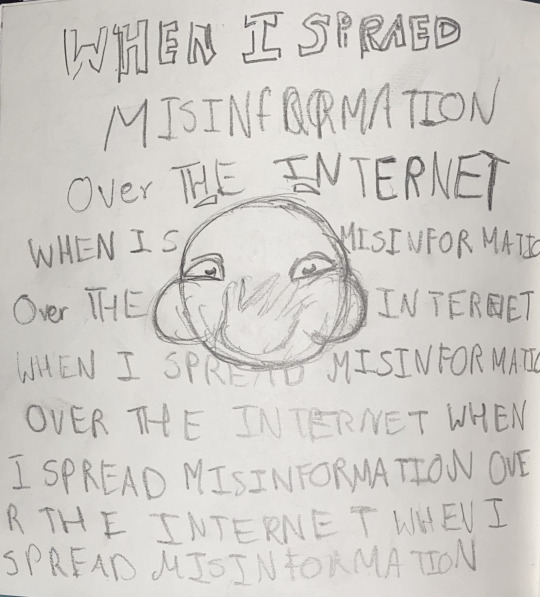 WHEN I SPRAED
MISINFORMATION
Over THE INTERNET
WHEN I S MISINFORMATIO
Over THE INTERNET
WHEN I SPREAD MISINFORMATIO
OVER THE INTERNET WHEN
I SPREAD MISINFORMATION OVE
R THE INTERNET WHEN I
SPREAD MISINFORMATION